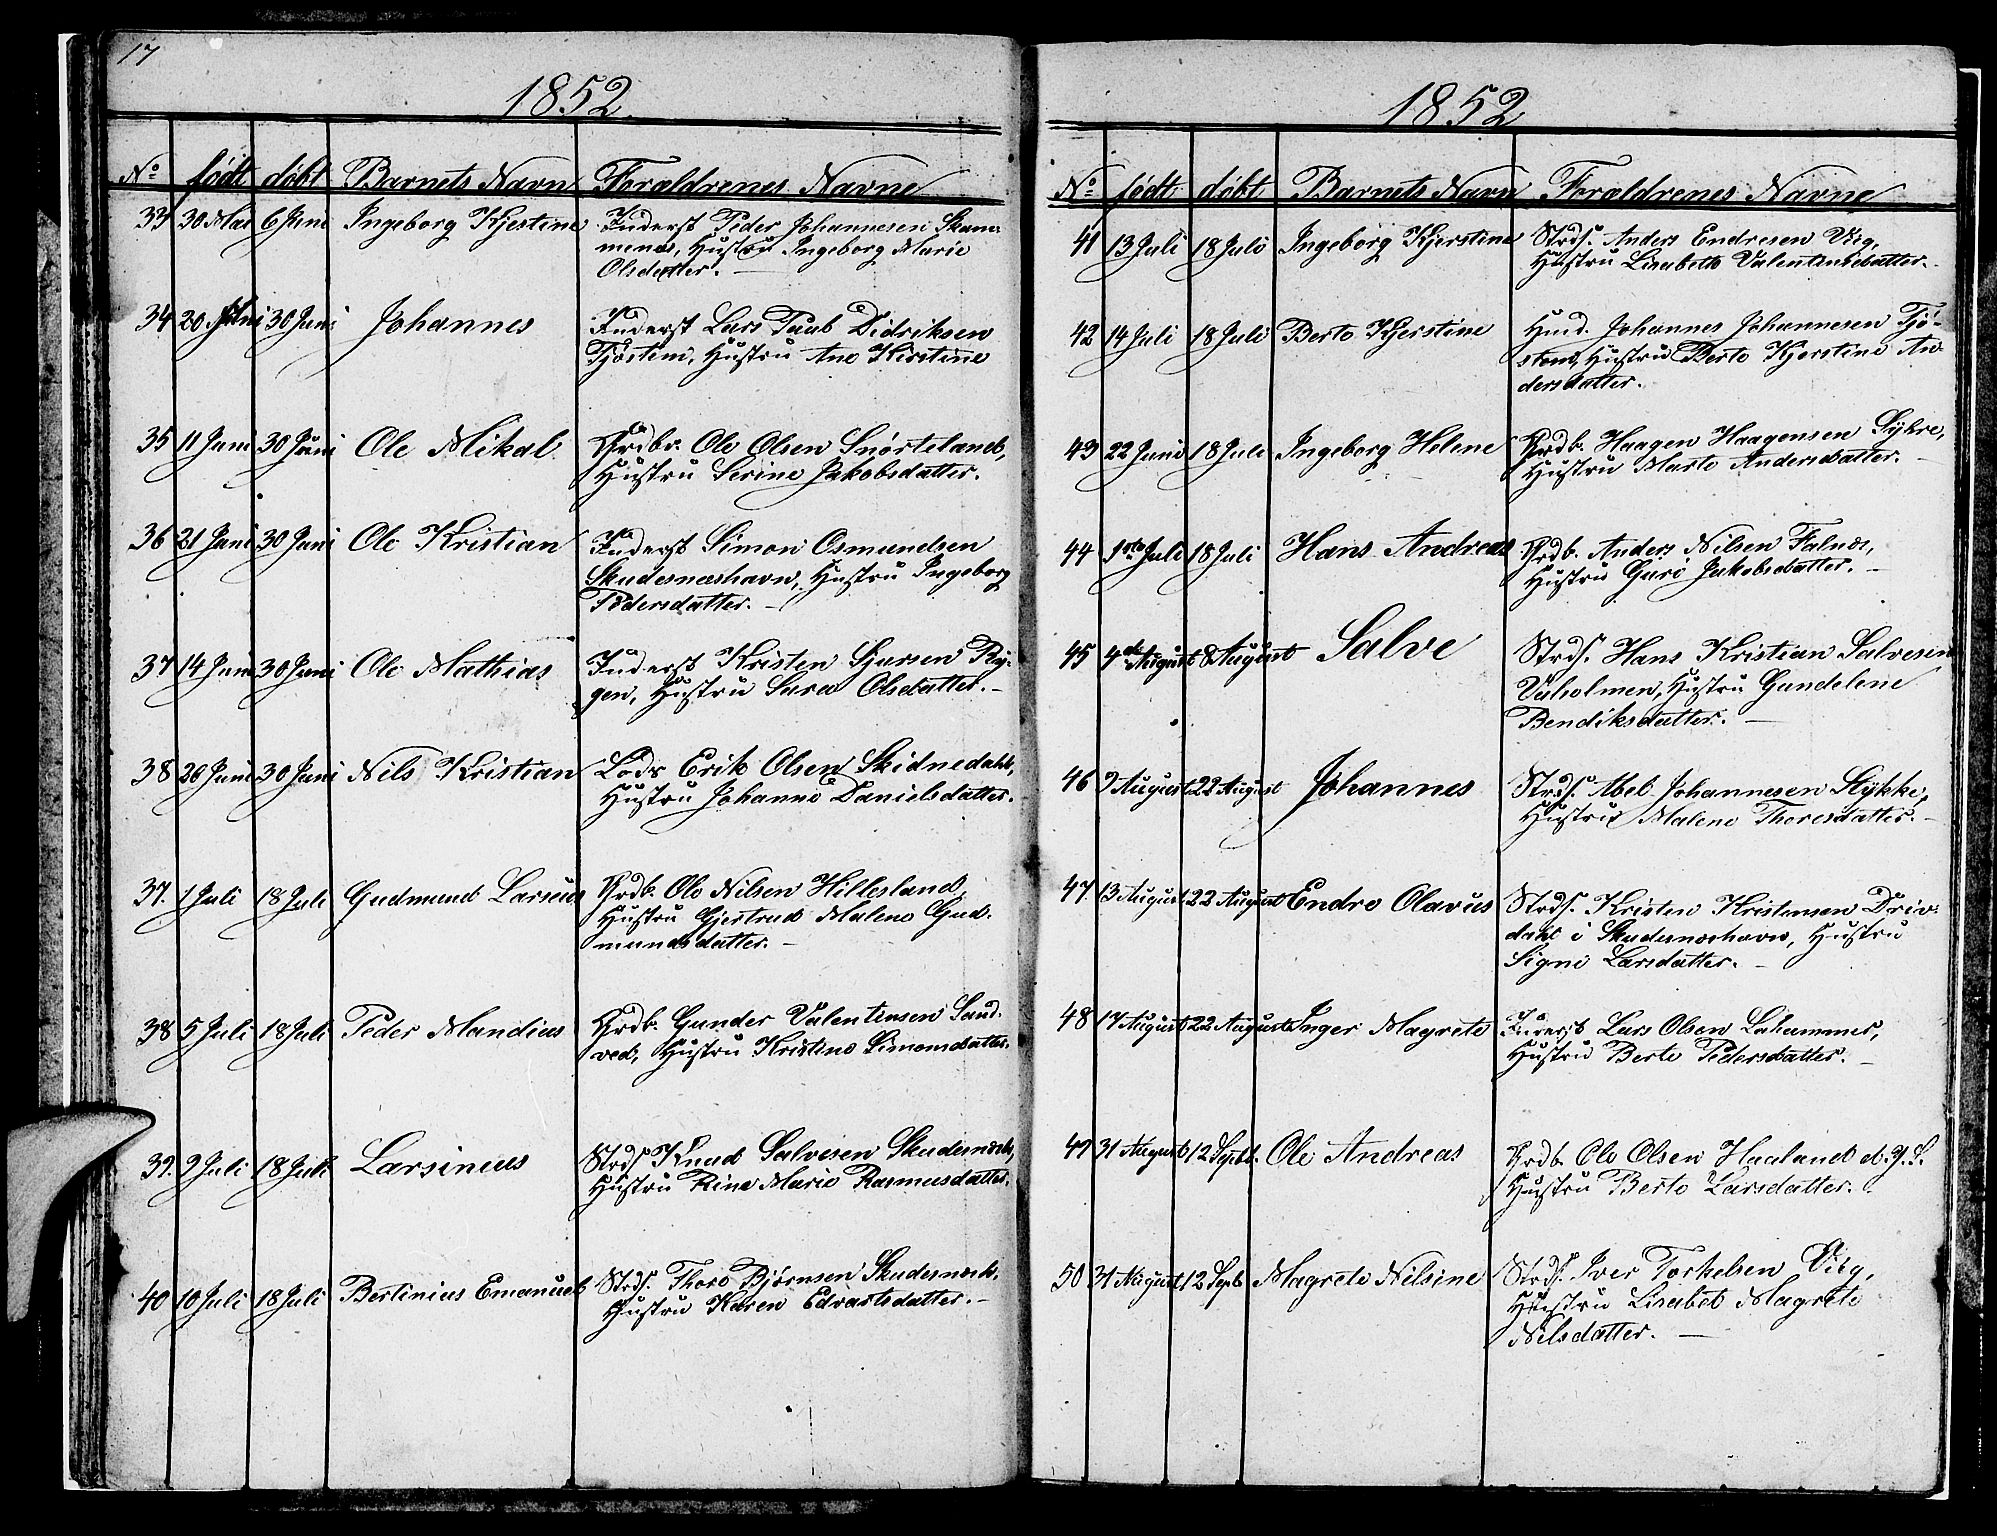 17
1852
No født døbt Barnets Navn Forældrenes Navne
33 30 Mai 6 Juni Ingeborg Kjestine Inderst Peder Johannesen Skam-
menes, Hustru Ingeborg Marie
Olsdatter. —
34 20 Juni 30 Juni Johannes Inderst Lars Paul Didriksen
Tjøstem, Hustru Ane Kirstine
35 11 Juni 30 Juni Ole Mikal Grdbr. Ole Olsen Snørteland,
Hustru Serine Jakobsdatter.
36 21 Juni 30 Juni Ole Kristian Inderst Simon Osmundsen
Skudesneshavn, Hustru Ingeborg
Pedersdatter. —
37 14 Juni 30 Juni Ole Mathias Inderst Kristen Sjursen Ry-
gen, Hustru Sara Olsdatter. —
38 26 Juni 30 Juni Nils Kristian Lods Erik Olsen Skidnedahl,
Hustru Johanne Danielsdatter.
37. 1 Juli 18 Juli Gudmund Larseus Grdb. Ole Nilsen Hillesland,
Hustru Gjertrud Malene Gud-
mundsdatter. —
38 5 Juli 18 Juli Peder Mandius Grdb. Gunder Valentinsen Sand-
ved, Hustru Kristine Simonsdatter.
39. 9 Juli 18 Juli Larsinius Strds. Knud Salvesen
Hustru Rine Marie Rasmusdatter.
40 10 Juli 18 Juli Bertinius Emanuel Strds. Thore Bjørnsen
Hustru Karen Edvartsdatter. —
1852
No født døbt Barnets Navn Forældrenes Navne
41 13 Juli 18 Juli Ingeborg Kjerstine Strds. Anders Endresen Vig,
Hustru Lisabeth Valentinsdatter.
42 14 Juli 18 Juli Berte Kjerstine Husd. Johannes Johannesen Tjø-
stem, Hustru Berte Kjerstine An-
dersdatter.
43 22 Juni 18 Juli Ingeborg Helene Grdb. Haagen Haagensen Syhre,
Hustru Marte Andersdatter. —
44 1ste Juli 18 Juli Hans Andreas Grdb. Anders Nilsen Falnes,
Hustru Guro Jakobsdatter. —
45 4de August 8 August Salve Strds. Hans Kristian Salvesen
Vaholmen, Hustru Gundelene
Bendiksdatter. —
46 9 August 22 August Johannes Strds. Abel Johannesen Stykke,
Hustru Malene Thoresdatter. —
47 13 August 22 August Endre Olavus Strds. Kristen Kristensen Driv-
dahl i Skudesneshavn, Hustru
Signi Larsdatter. —
48 17 August 22 August Inger Magrete Inderst Lars Olsen Lahammer,
Hustru Berte Pedersdatter. —
49 31 August 12 Septb. Ole Andreas Grdb. Ole Olsen Haaland d. y. S.
Hustru Berte Larsdatter.
50 31 August 12 Septb Magrete Nilsine Strds. Iver Torkelsen Vig,
Hustru Lisabet Magrete
Nilsdatter. —